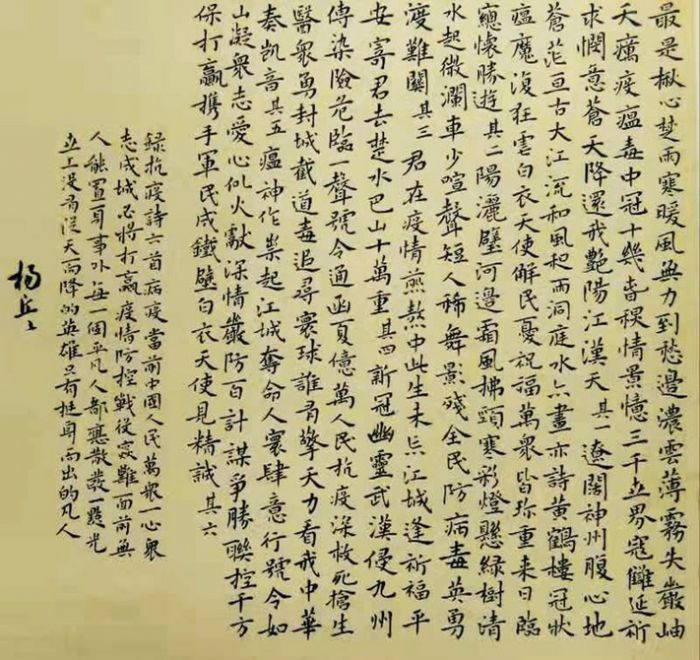 最是楸心楚雨寒暖風無力到愁邊濃雲薄霧失巖岫
夭癘疫瘟毒中冠十幾旹稧情景憶三千立界寇讎延祈
求憫意蒼天降還我艷陽江漢天 其一 遼闊神州腹心地
蒼茫亘古大江流和風和雨洞庭水亦畫亦詩黃鶴樓冠狀
瘟魔復狂雲白衣天使解民憂祝福萬衆皆珎重來日臨
窻懷勝遊 其二 陽灑壁河邊霜風拂頸寒彩燈懸綠樹清
水起微瀾車少喧聲短人稀舞影殘全民防病毒英勇
渡難關 其三 君在疫情煎熬中此生未忘江城逢祈福平
安寄君去楚水巴山十萬重 其四 新冠幽靈武漢侵九州
傳染險危臨一聲號令通函夏億萬人民抗疫深救死搶生
醫衆勇封城截道毒追尋寰球誰有擎天力看我中華
奏凱音 其五 瘟神作祟起江城奪命人寰肆意行號令如
山凝衆志愛心似火獻深情嚴防百計謀爭勝聯控千方
保打贏携手軍民成鐵壁白衣天使見精誠 其六
録抗疫詩六首病疫當前中國人民萬衆一心衆
志成城必將打贏疫情防控戰役災難面前無
人能置身事外每一個平凡人都應散發一點光
立上没有從天而降的英雄只有挺身而出的凡人
楊立上